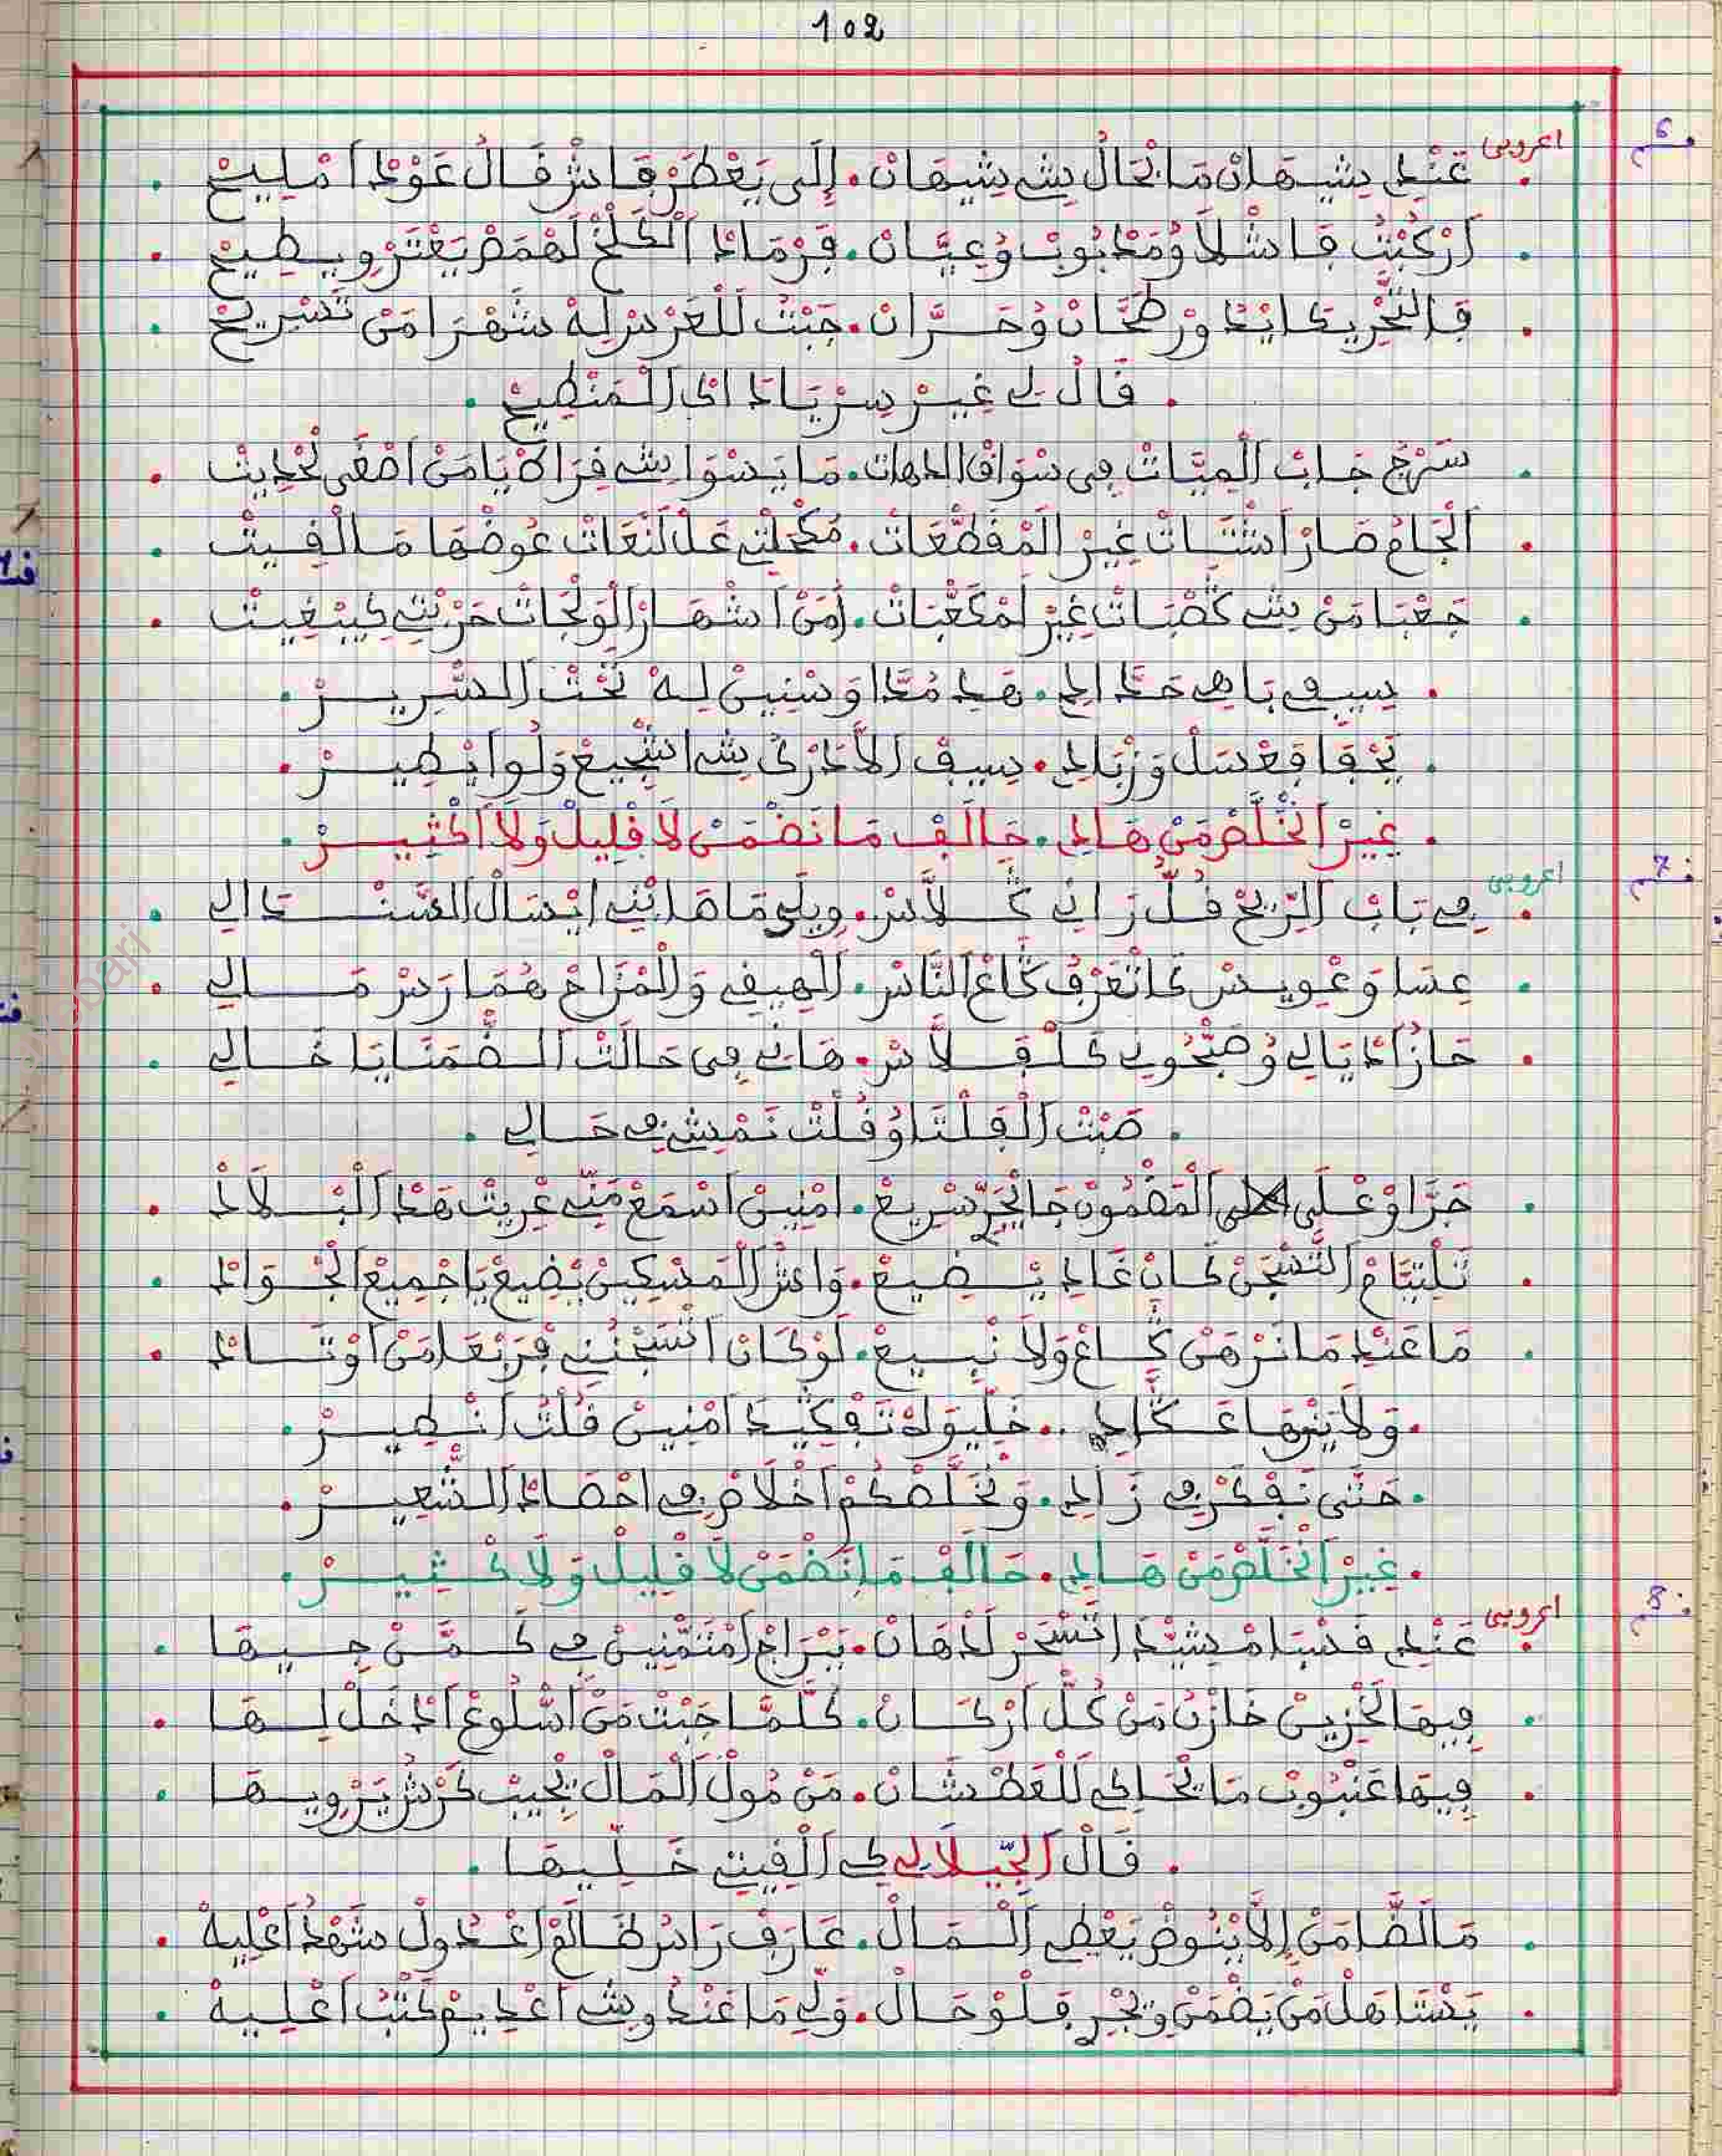 102
ق 6 اعروبي
. عَنْدِ شِيهَانْ مَا بْحَالُ شِي شِيهَانْ. إِلَى يَعْطَرْ قَاشْ قَالُ عَوْدْ امْلِيحْ .
. ارْكَبْتُ قَاشْلَا وُمَدْبُوبْ وُعِيَّانْ. قَرْمَادْ الْكَلْخْ لَهْمَصْ يَعْتَرْ وِيطِيحْ .
. قَالتَّحْرِيكَا ايْدُورْ طَحَّانْ وُحَرَّانْ. جَبْتُ لَلْعَرْسْ لِهْ شْهَرْ امَنْ تَسْرِيحْ .
. قَالْ لِي غِيرْ سِرْ يَادْ اكَ الْمَنْطِيحْ .
. سَرْجْ جَابْ الْمِيَّاتْ فِي سْوَاقْ الدهات. مَا يَسْوَا شِي فِرَاكْ يَا مَنْ اصْغَى لَحْدِيتْ .
. الْجَامْ صَارْ اشْتَاتْ غِيرْ الْمْقَطْعَاتْ. مُكْحَلْتِي عَلْ لَنْعَاتْ عُوضْهَا مَا الْقِيتْ .
. جَعْبَا مَنْ شِي كُصْبَاتْ غِيرْ لَمْكَعْبَاتْ. امَنْ اشْهَارْ الْوَلْجَاتْ حَرْبْتِي كِيبْغِيتْ .
. سِيفِي بَاهِي حَدَّادِ. هَدِ مُدَّا وَسْنِينْ لِهْ تَحْتْ السْرِيرْ .
. يَحْقَا قَعْسَلْ وَزْبَادِ. سِيفْ الَّا دَرْكُ شِي اشْجِيعْ وَلُّوا يْطِيرْ .
. غِيرْ انْخَلَّصْ مَنْ هَادِ. حَالَفْ مَا نَضْمَنْ لَا قْلِيلْ وَلَا اكْثِيرْ .
ق 7 اعروبي
. فِي بَابْ الرِّيحْ قُلّْ رَانِي كَلَّاسْ. وِيلِي مَا هَانِّي ايْسَالْ السَّنْدَالِي .
. عِسَا وَعْوِيسْ كَاتَعْرَفْ كَاعْ النَّاسْ. الْهِيفِي وَالْمْزَاحْ هُمَا رَسْ مَالِي .
. حَازُ ادْيَالِي وُصَبْحُونِي كَلْفَلَّاسْ. هَانِي فِي حَالَتْ الضَّمَنَا يَا خَالِي .
. صَبْتْ الْفَلْتَا وُقُلْتْ نَمْشِي فِي حَالِي .
. جَرَّاوْ عْلَى الْمَضْمُونْ جَا يْجَرّْ سْرِيعْ. امْنِينْ اسْمَعْ مَنِّي عْرِيتْ هَدْ الْبْلَادْ .
. تَلْتِيَّامْ التَّسْجَنْ كَانْ غَادِ يْضِيعْ. وَاشْ الْمَسْكِينْ يْضِيعْ يَا جْمِيعْ الْجْوَادْ .
. مَا عَنْدِ مَا نَرْهَنْ كَاعْ وَلَا نْبِيعْ. لَوْ كَانْ اتْسَجْنْنِي قَرَبْعَا مَنْ اوْتَادْ .
. وَلَا يَنْهَا عَكَّادِ .. خَلِّيوَهْ تَفْكِّيدَ امْنِينْ قُلْتُ انْطِيرْ .
. حَتَّى نَفْكَرْ فِي زَادِ. وَنْخَلَّصْكُمْ اخْلَاصْ فِي احْصَادْ الشّْعِيرْ .
. غِيرْ انْخَلَّصْ مَنْ هَادِ. حَالَفْ مَا نَضْمَنْ لَا قْلِيلْ وَلَا كْثِيرْ .
ق 8 اعروبي
. عَنْدِ قَصْبَا مْشِيّْدَ اتْسْحَرْ لَدْهَانْ. بَبْرَاجْ امْتَمْنِينْ فِي كَمَّنْ جِيهَا .
. فِيهَا لَخْزِينْ خَازْنُ مَنْ كُلّْ ارْكَانْ. كُلَّمَا جَبْتْ مَنْ اسْلُوعْ ادْخَلْ لِيهَا .
. فِيهَا عَنْبُوبْ مَا يْحَاكِي لَلْعَطْشَانْ. مَنْ مُولْ الْمَالْ يْجِيبْ كَرْشْ يَرْوِيهَا .
. قَالْ الْجِّيلَالِي كِي الْفِيتِي خَلِّيهَا .
. مَا الضَّامَنْ إِلَّا يْنُوضْ يَعْطِي الْمَالْ. عَارَفْ رَاسُ ظَالَمْ اعْدُولْ شَهْدُ اعْلِيهْ .
. يَسْتَاهَلْ مَنْ يَضْمَنْ وِيْجِرِ قَلْوْحَالْ. وَلِّي مَا عَنْدُ وِشِي اعْدِيمْ كَتْبُ اعْلِيهْ .